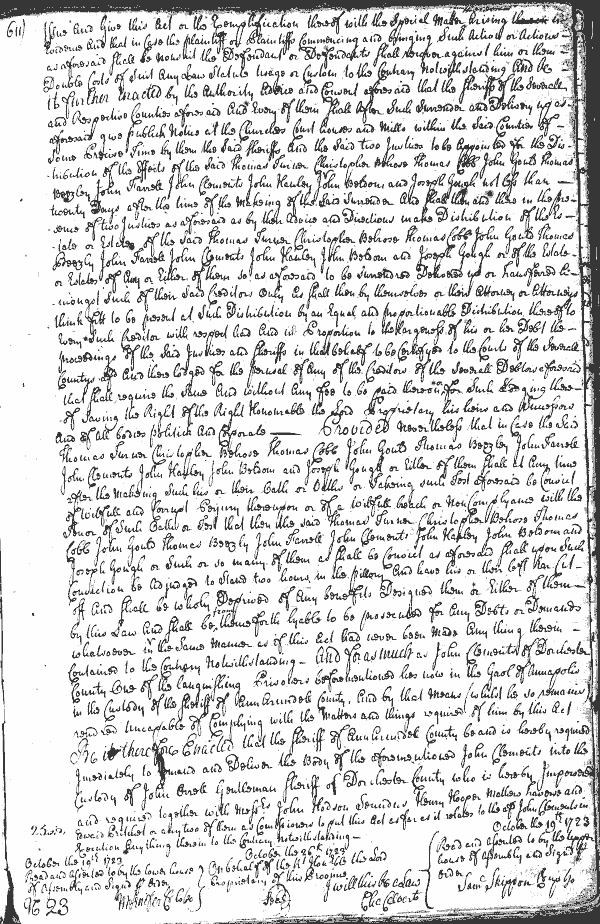 611
Issue And Give this Act or the Exemplification thereof with the Special Matter Arising there in
Evidence And that in Case the plaintiff or plaintiffs Commencing and bringing Such Action or Actions
as aforesaid Shall be nonsuit the Defendant or Defendants Shall recover against him or them
Double Costs of Suit Any Law Statute Usage or Custom to the Contrary Notwithstanding And be
it further Enacted by the Authority Advice and Consent aforesaid that the Sheriff of the Severall
and Respective Counties aforesaid And Every of them Shall After Such Surrender and Delivery up as
aforesaid give publick Notice at the Churches Court houses and Mills within the Said Counties of
Some Precise Time by them the Said Sheriffs And the Said two Justices to be Appointed for the Dis-
tribution of the Effects of the Said Thomas Turner Christopher Belrose Thomas Cobb John Gould Thomas
Beezley John Farrell John Clements John Hanley John Beldom and Joseph Gough not less than
twenty Days after the time of the Makeing of the Said Surrender And Shall then and there in the pres-
ence of two Justices as aforesaid as by their Advice and Directions make Distribution of the Es-
tate or Estates of the Said Thomas Turner Christopher Belrose Thomas Cobb John Gould Thomas
Beezly John Farrell John Clements John Hanley John Beldom and Joseph Gough or of the Estate
or Estates of Any or Either of them so as aforesaid to be Surrendred Delivered up or transferred A-
mongst Such of their Said Creditors Only As Shall then by themselves or their Attorney or Attorneys
think fitt to be present at Such Distribution by an Equal and proportionable Distribution thereof to
Every Such Creditor with respect had And in Proportion to the Largeness of his or her Debt the
proceedings of the Said Justices and Sheriffs in that behalf to be Certifyed to the Courts of the Severall
Countys and And there lodged for the perusal of Any of the Creditors of the Severall Debtors aforesaid
that shall require the Same And without Any Fee to be paid thereon or for Such Lodging there-
of Saving the Right of the Right Honourable the Lord Proprietary his heirs and Successors
And of All bodies Politick And Corporate Provided Nevertheless that in case the Said
Thomas Turner Christopher Belrose Thomas Cobb John Gould Thomas Beezley John Farrell
John Clements John Hanley John Beldom and Joseph Gough or Either of them Shall at Any time
after the Makeing Such his or their Oath or Oaths or Takeing such Test aforesaid be Convict
of Willfull and Corrupt Perjury thereupon or of a Willfull breach or Non Complyance with the
Tenor of Such Oaths or Test that then the said Thomas Turner Christopher Belrose Thomas
Cobb John Gould Thomas Beezly John Farrell John Clements John Hanley John Beldom and
Joseph Gough or Such or so many of them as Shall be Convict as aforesaid Shall upon Such
Conviction be Adjudged to Stand two hours in the Pillory And have his or their Left Ear Cutt
off And Shall be wholy Deprived of Any benefits Designed them or Either of them
by this Law And Shall be from thenceforth lyable to be prosecuted for Any Debts or Demands
whatsoever in the Same Manner as if this Act had never been Made Any thing therein
Contained to the Contrary Notwithstanding And For as much as John Clements of Dorchester
County One of the languishing Prisoners beforementioned lies now in the Gaol of Annapolis
in the Custody of the Sheriff of Ann Arundell County And by that Means (whilst he so remains
rendred Uncapable of Complying with the Matters and things required of him by this Act
Be it therefore Enacted that the Sheriff of Ann Arundell County be and is hereby required
Imediately to and Deliver the Body of the aforementioned John Clements into the
Custody of John Orrell Gentleman Sheriff of Dorchester County who is hereby Impowered
and required together with Messrs John Hodson Henry Hooper Mathew and
Pritchet or any two of them as Comissioners to put this Act as far as it relates to the sd John Clements in
Execution Anything therein to the Contrary Notwithstanding
October the 19th 1723
Read and Assented to by the Lower house
of Assembly and Signd pr Order
October the 26th 1723
On behalf of the Rt Honble the Lord
Proprietary of this Province
I will this be a Law
Cha Calvert
October the 19th 1723
Read and assented to by the Upper
house of Assembly and Signd pr
order
Saml Skippon
23